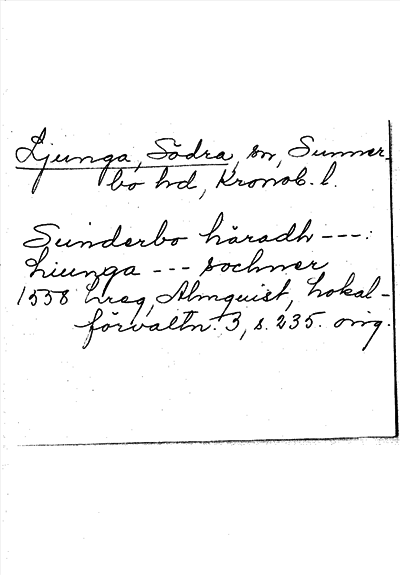 Ljunga, Södra, sn, Sunner-
bo hd, Kronob. l.
Sunderbo häradh ---:
Liunga --- sochner
1558 hreg, Almquist, Lokal-
förvaltn. 3, s. 235. orig.